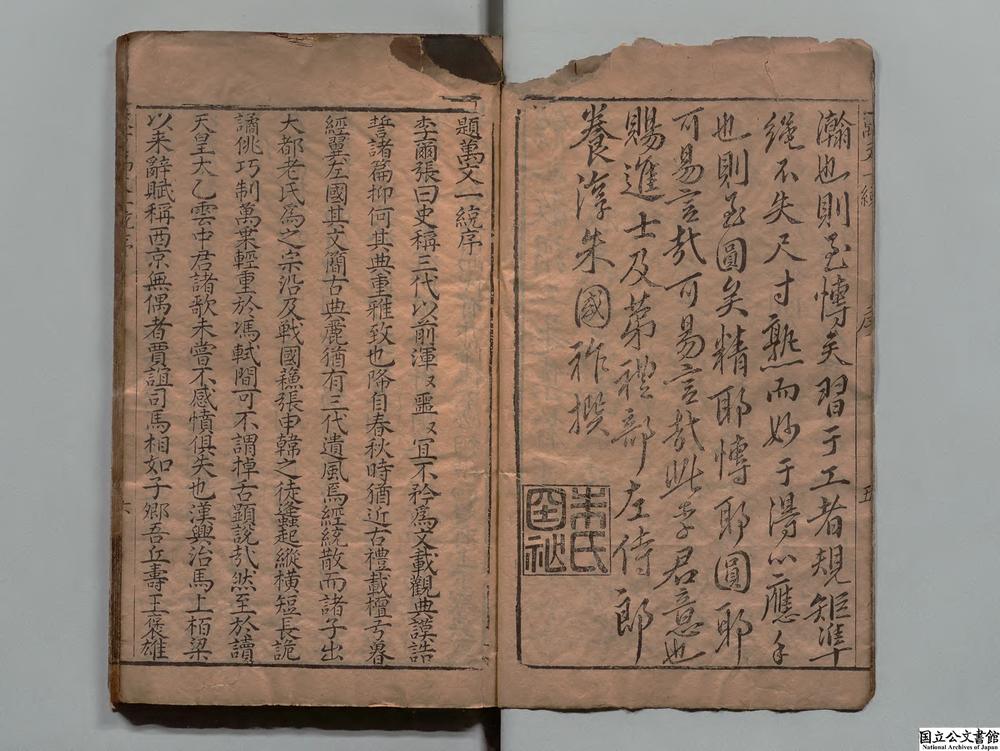 瀚也則至慱矣習于工者規矩準
繩不失尺寸熟而妙于得心應手
也則至圓矣精耶慱耶圓耶
可易言哉可易言哉此李君意也
賜進士及第禮部左侍郎
養淳朱國祚撰
朱氏
國祚
題萬文一統序
李爾張曰史稱三代以前渾〻噩〻冝不矜為文載觀典謨誥
誓諸篇抑何其典重雅致也降自春秋時猶近古禮載檀弓畧
經翼左國其文簡古典麗猶有三代遺風焉經統散而諸子出
大都老氏為之宗沿及戰國穌張申韓之徒蠭起縱橫短長詭
譎佻巧制萬乗輕重於馮軾間可不謂棹古顯說哉然至於讀
天皇太乙雲中君諸歌未嘗不感憤俱失也漢興治馬上栢梁
以来辭賦稱西京無偶者賈誼司馬相如子卿吾丘壽王褒雄
萬文一統
序
五
六
国立公文書館
National Archives of Japan